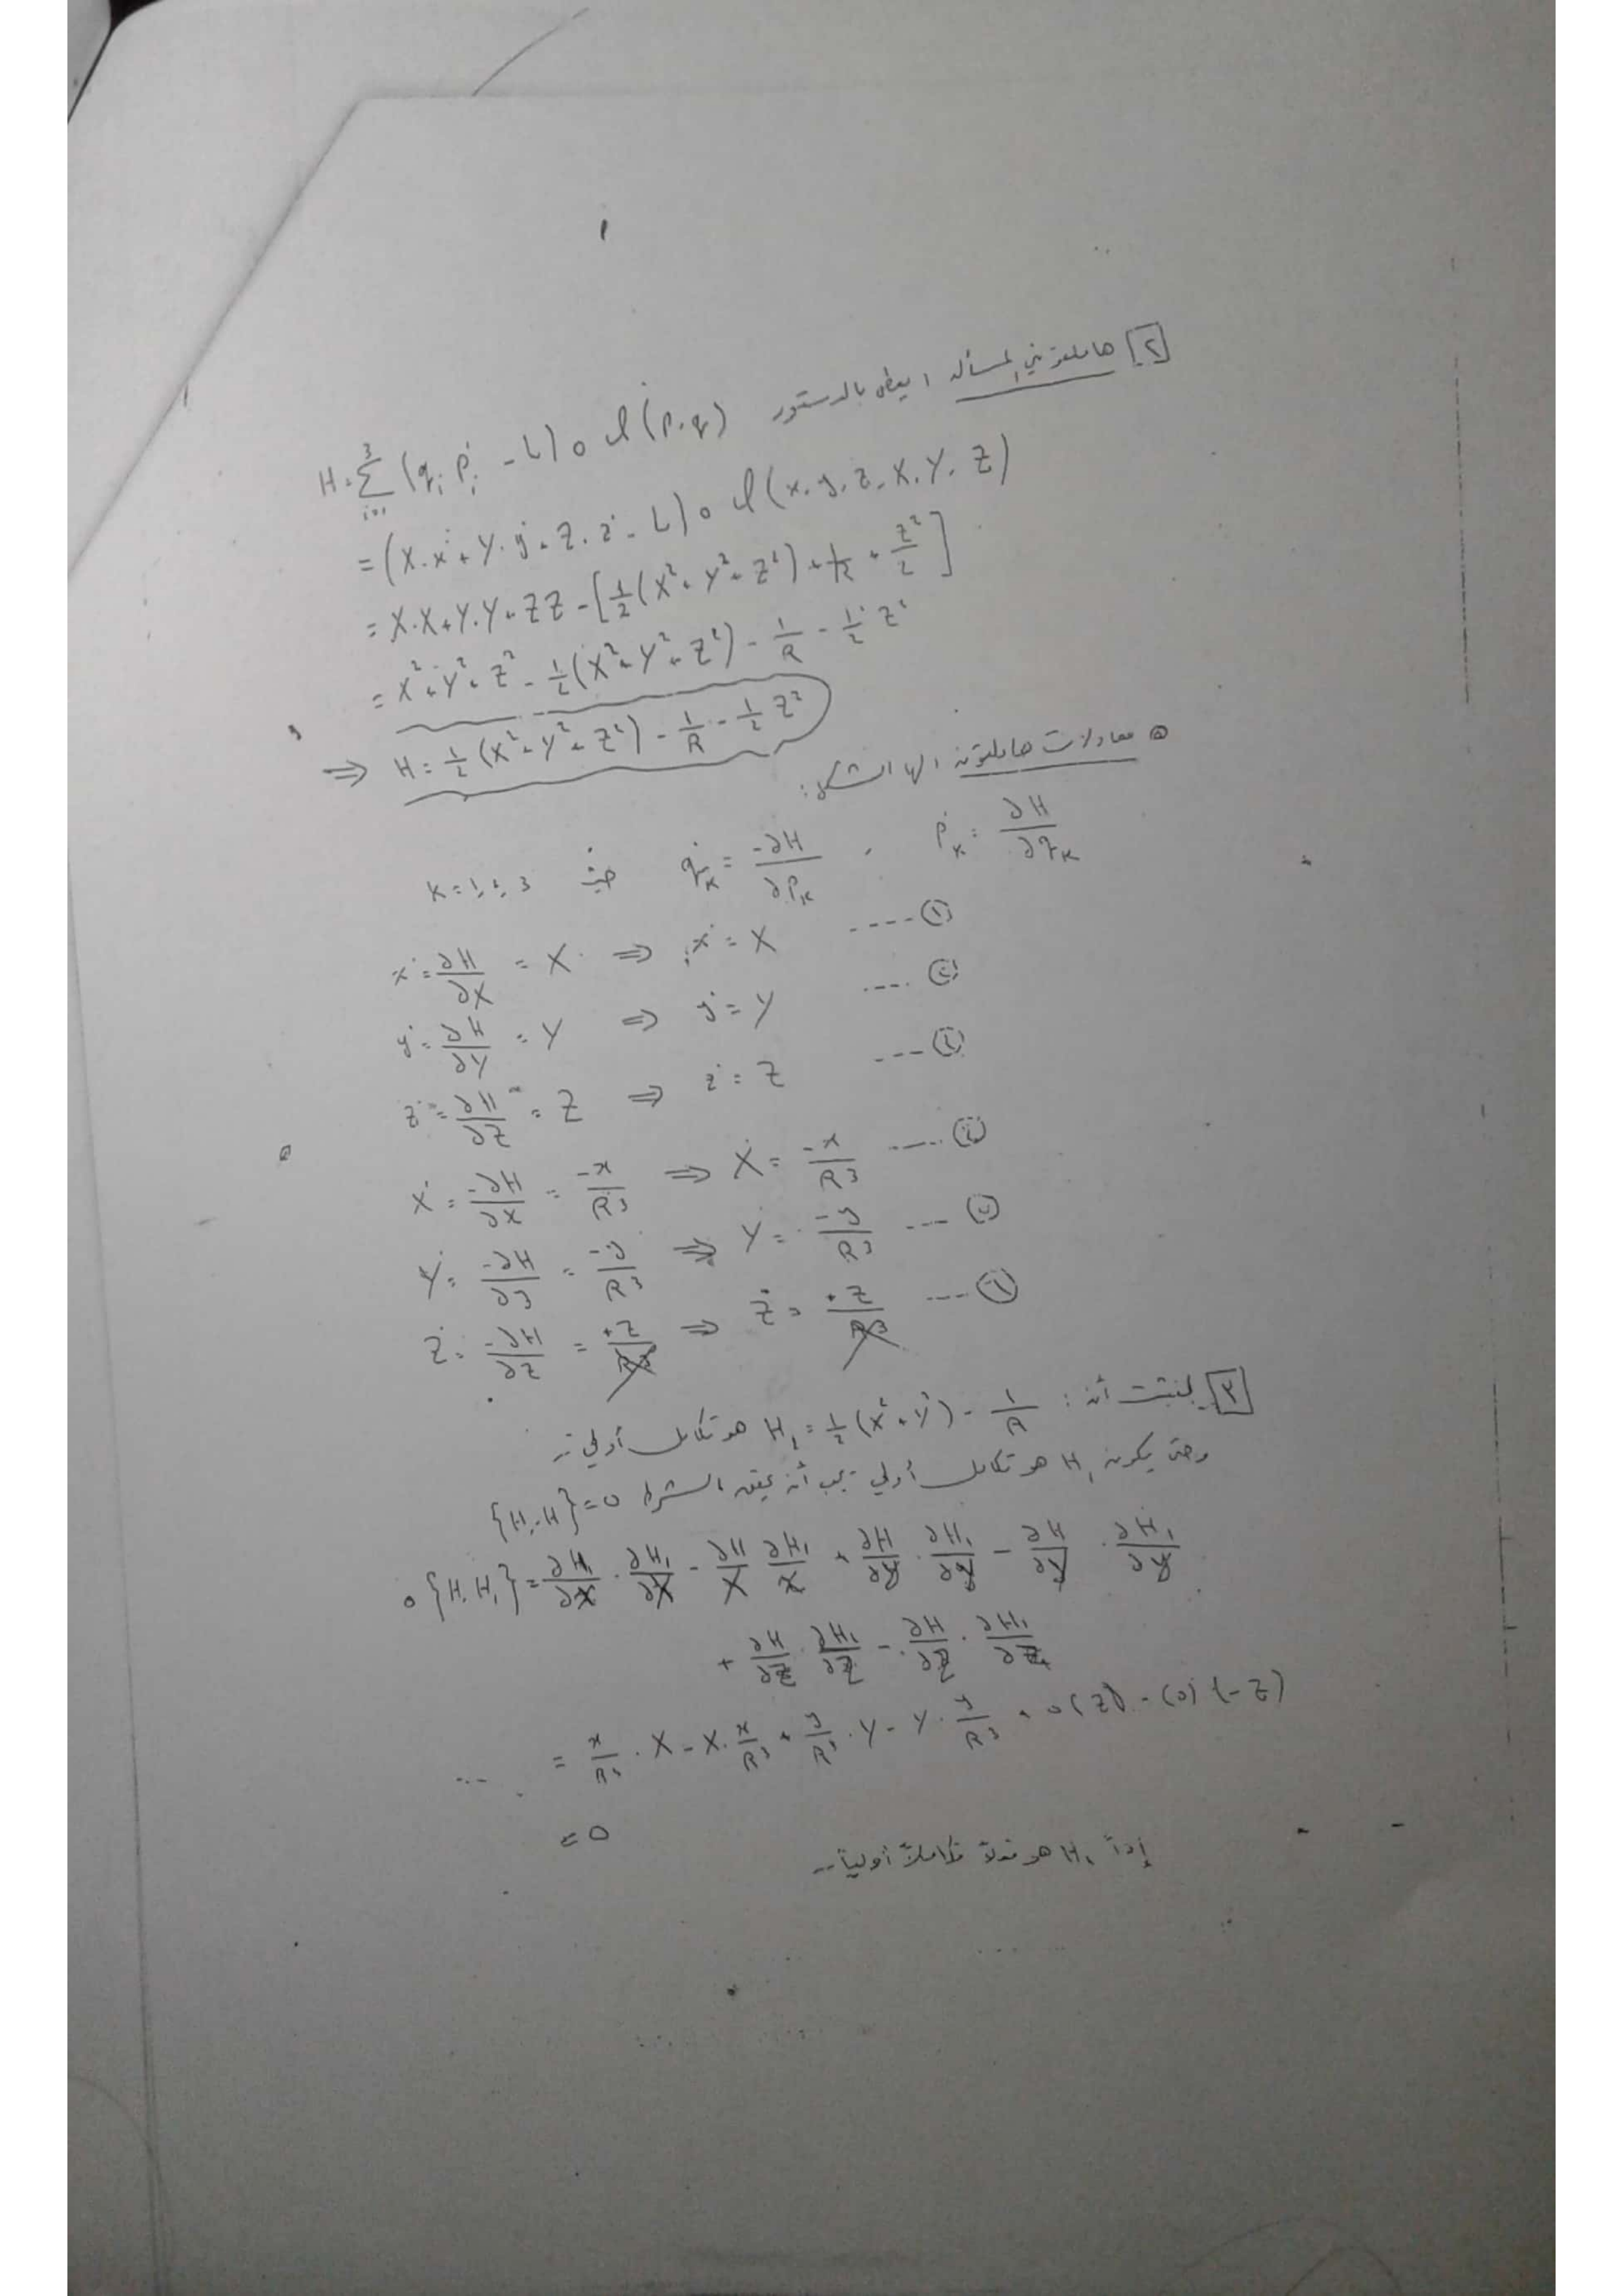 [٢] هاملتوني المسألة ، يعطى بالدستور
H = \sum_{i=1}^{3} (q_i \dot{p}_i - L) ∘ φ(p, q)
= (X.x˙ + Y.y˙ + Z.z˙ - L) ∘ φ(x, y, z, X, Y, Z)
= X.X + Y.Y + ZZ - [1/2 (X² + Y² + Z²) + 1/R + Z²/2]
= X² + Y² + Z² - 1/2 (X² + Y² + Z²) - 1/R - 1/2 Z²
⇒ H = 1/2 (X² + Y² + Z²) - 1/R - 1/2 z²
• معادلات هاملتون لها الشكل:
p˙_k = ∂H/∂q_k , q˙_k = -∂H/∂p_k حيث k = 1, 2, 3
x˙ = ∂H/∂X = X ⇒ x˙ = X ---- ①
y˙ = ∂H/∂Y = Y ⇒ y˙ = Y ---- ②
z˙ = ∂H/∂Z = Z ⇒ z˙ = Z ---- ③
X˙ = -∂H/∂x = -x/R³ ⇒ X˙ = -x/R³ ---- ④
Y˙ = -∂H/∂y = -y/R³ ⇒ Y˙ = -y/R³ ---- ⑤
Z˙ = -∂H/∂z = +z ⇒ Z˙ = +z ---- ⑥
[٣] لنثبت أن: H₁ = 1/2 (X² + Y²) - 1/R هو تكامل أولي
وحتى يكون H₁ هو تكامل أولي يجب أن يحقق الشرط {H, H₁} = 0
∘ {H, H₁} = ∂H/∂x . ∂H₁/∂X - ∂H/∂X ∂H₁/∂x + ∂H/∂y . ∂H₁/∂Y - ∂H/∂Y . ∂H₁/∂y
+ ∂H/∂z . ∂H₁/∂Z - ∂H/∂Z . ∂H₁/∂z
= x/R³ . X - X . x/R³ + y/R³ . Y - Y . y/R³ + 0(Z) - (0)(-z)
= 0
إذاً H₁ هو فعلاً تكاملاً أولياً